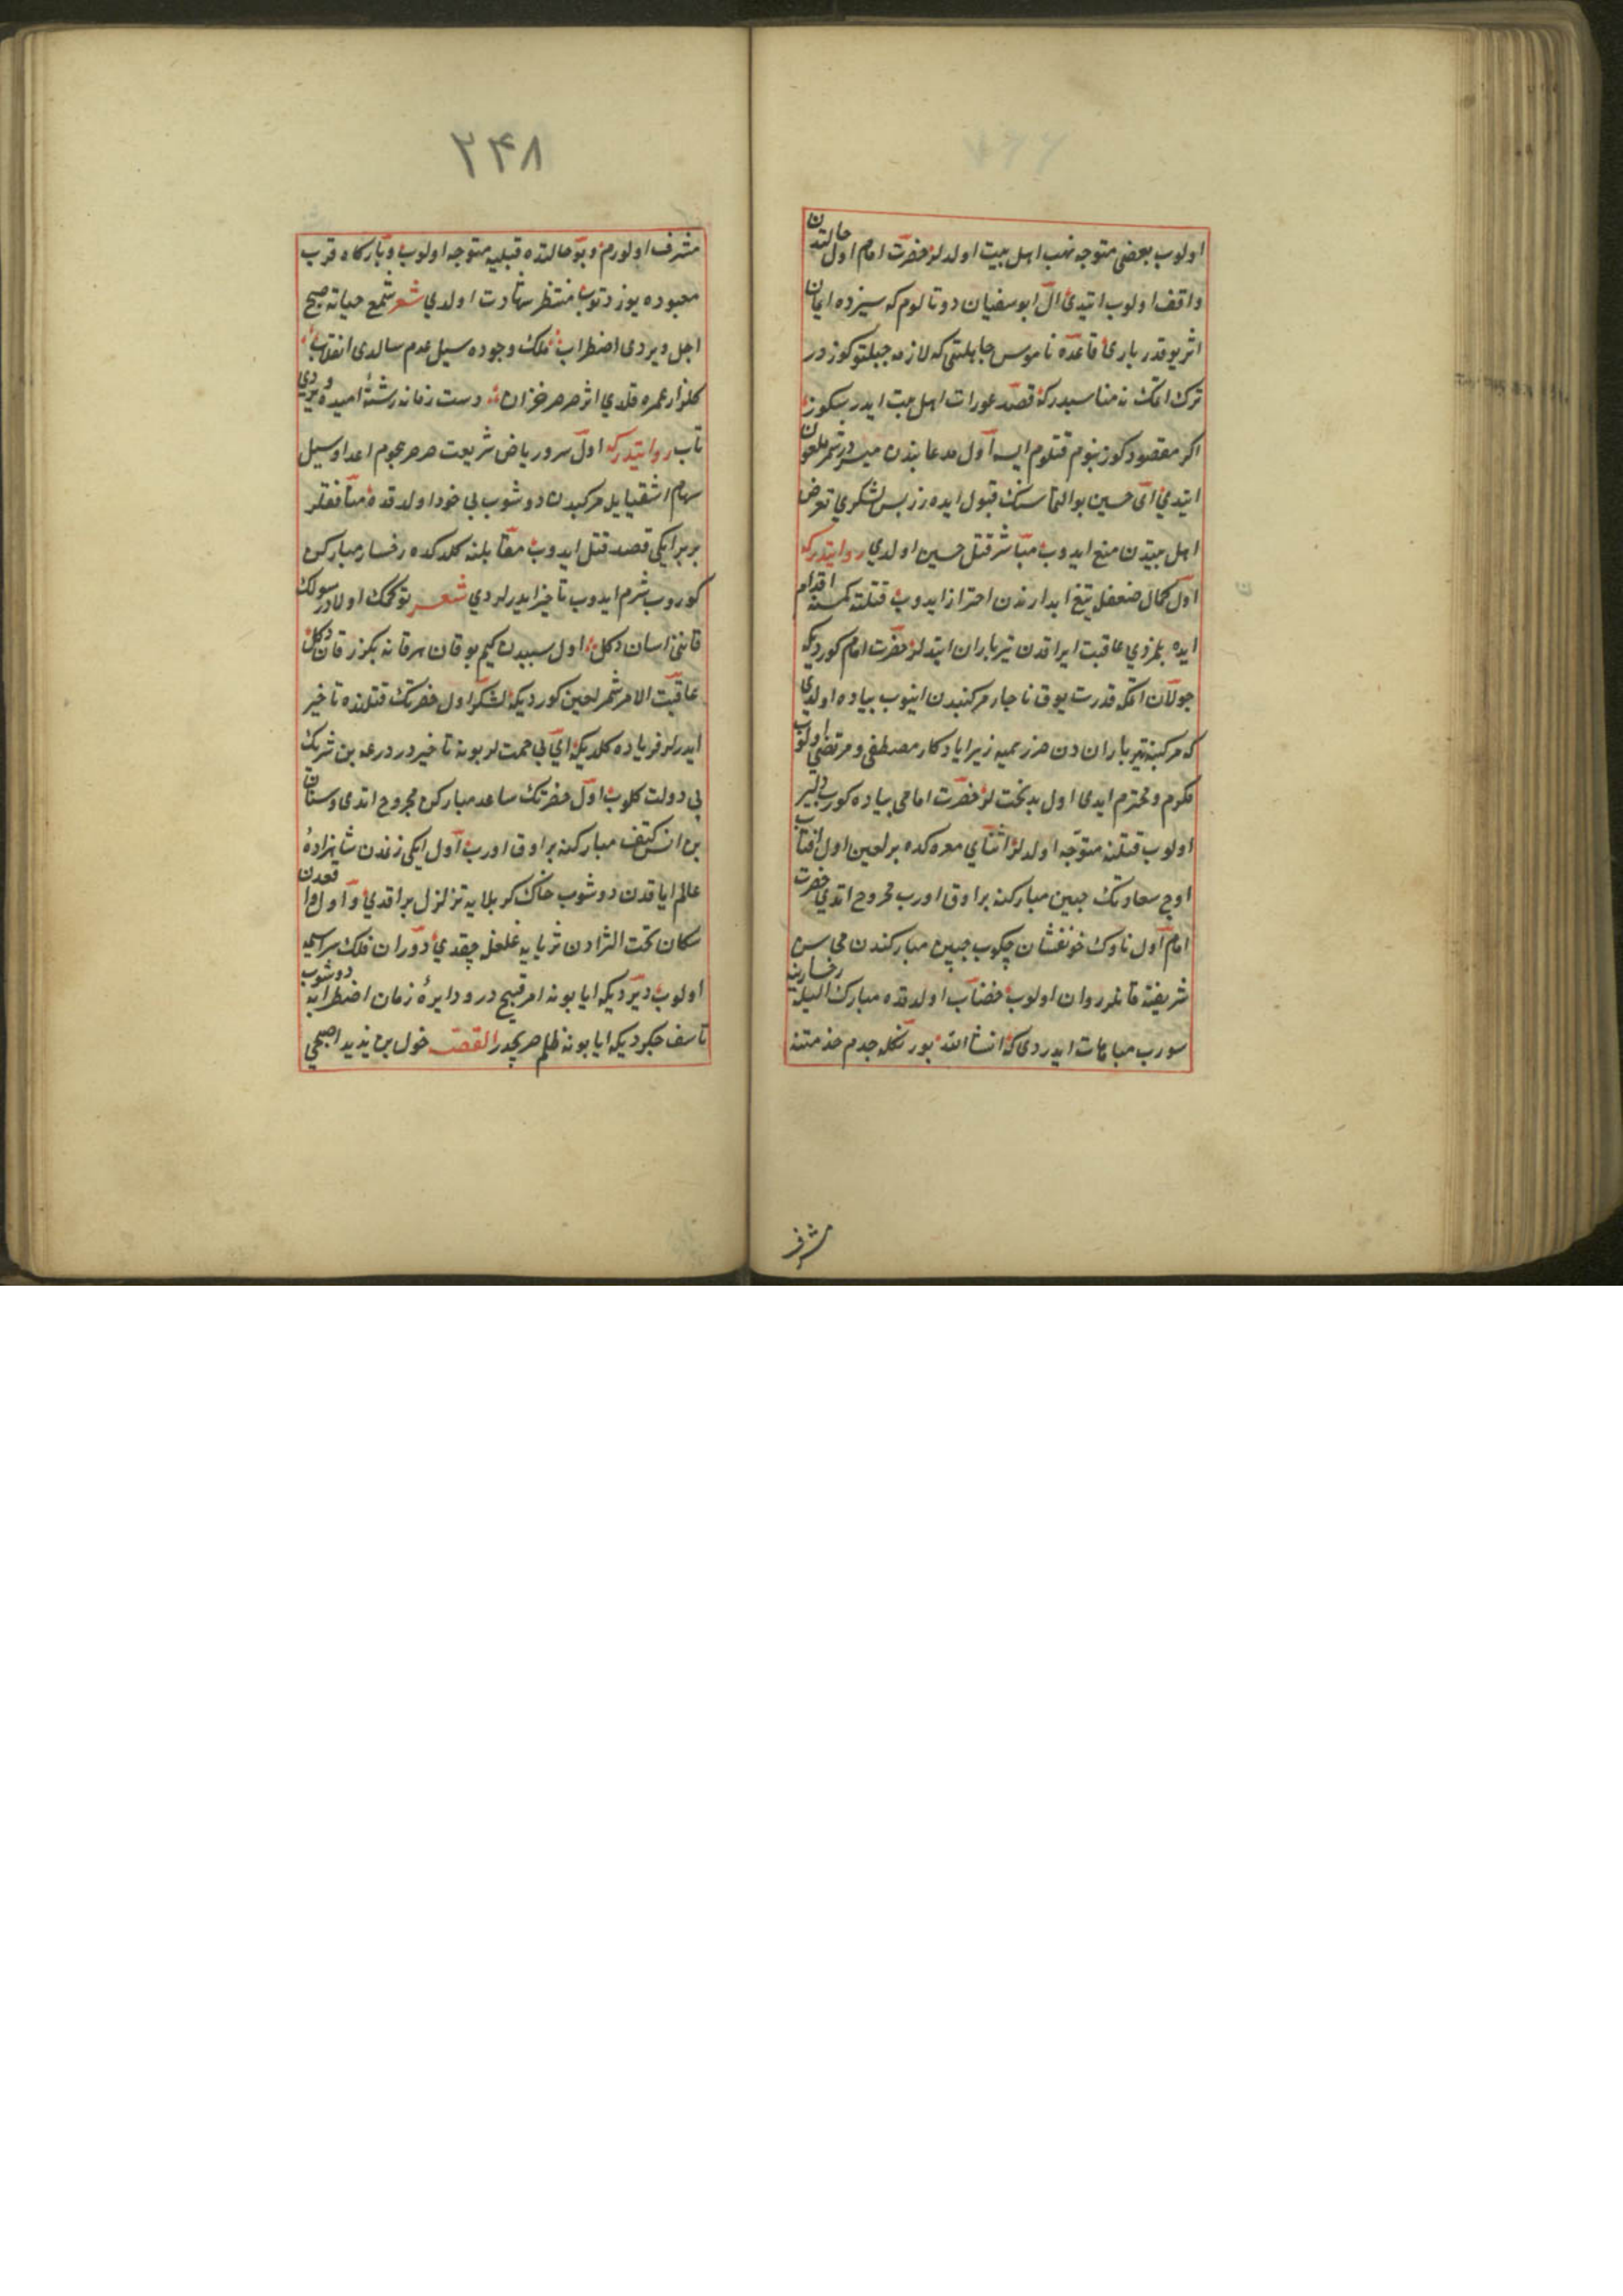 اولوب بعضی متوجه نهب اهل بیت اولدلر حضرت امام اول حالتدن
واقف اولوب ایتدی ال ابوسفیان دوتالوم که سیزده ایمان
اثر یوقدر باری قاعده ناموس جاهلیتی که لازمه جبلتوکوزدر
ترک اتمک نه مناسبدر که قصد عورات اهل بیت ایدرسکوز
اکر مقصودکوز بنوم قتلوم ایسه اول مدعا بندن میسردر شمر ملعون
ایتدی ای حسین بو التماسنک قبول ایده رز پس لشکری تعرض
اهل بیتدن منع ایدوب مباشر قتل حسین اولدی روایتدر که
اول کمال ضعفله تیغ ابدارندن احتراز ایدوب قتلنه کمسنه اقدام
ایده بلمزدی عاقبت ایراقدن تیرباران ایتدلر حضرت امام کوردیکه
جولان اتمکه قدرت یوق ناچار مرکبندن اینوب پیاده اولدی
که مرکبنه تیرباران دن ضرر یمیه زیرا یادکار مصطفی و مرتضی اولوب
مکرم و محترم ایدی اول بدبخت لر حضرت امامی پیاده کورب دلیر
اولوب قتلنه متوجه اولدلر اثنای معرکده بر لعین اول افتاب
اوج سعادتک جبین مبارکنه بر اوق اورب مجروح اتدی حضرت
امام اول ناوک خونفشان چکوب جبین مبارکندن محاسن
شریفنه قانلر روان اولوب خضاب اولدقده مبارک الیله رخسارینه
سورب مباهات ایدردی که انشا الله بو رنکله جدم خدمتنه
مشرف
۲۴۸
مشرف اولورم و بو حالتده قبلیه متوجه اولوب و بارکاه قرب
معبوده یوز دتوب منتظر شهادت اولدی شعر شمع حیاته صبح
اجل ویردی اضطراب ملک وجوده سیل عدم سالدی انقلاب
کلزار عمره قلدی اثر صرصر خزان دست زمانه رشتهٔ امیده ویردی
تاب روایتدر که اول سرور ریاض شریعت صرصر هجوم اعدا و سیل
سهام اشقیایله مرکبدن دوشوب بی خود اولدقده منافقلر
بربر ایکی قصد قتل ایدوب مقابلنه کلدکده رخسار مبارکن
کوروب شرم ایدوب تاخیر ایدرلردی شعر توکمک اولاد رسولک
قاننی اسان دکل اول سببدن کیم بو قان هر قانه بکزر قان دکل
عاقبت الامر شمر لعین کوردیکه لشکر اول حضرتک قتلنده تاخیر
ایدرلر فریاده کلدیکه ای بی حمیت لر بو نه تاخیردر درعه بن شریک
بی دولت کلوب اول حضرتک ساعد مبارکن مجروح اتدی و سنان
بن انس کتف مبارکنه بر اوق اورب اول ایکی زخمدن شاهزادهٔ
عالم ایاقدن دوشوب خاک کربلایه تزلزل براقدی و اول واقعدن
سکان تحت الثرادن ثریایه غلغل چقدی دوران فلک سراسیمه
اولوب دیردیکه ایا بو نه امر قبیح درو دایرهٔ زمان اضطرابه دوشوب
تاسف چکردیکه ایا بو نه ظلم صریحدر القصه خول بن یزید اصبحی